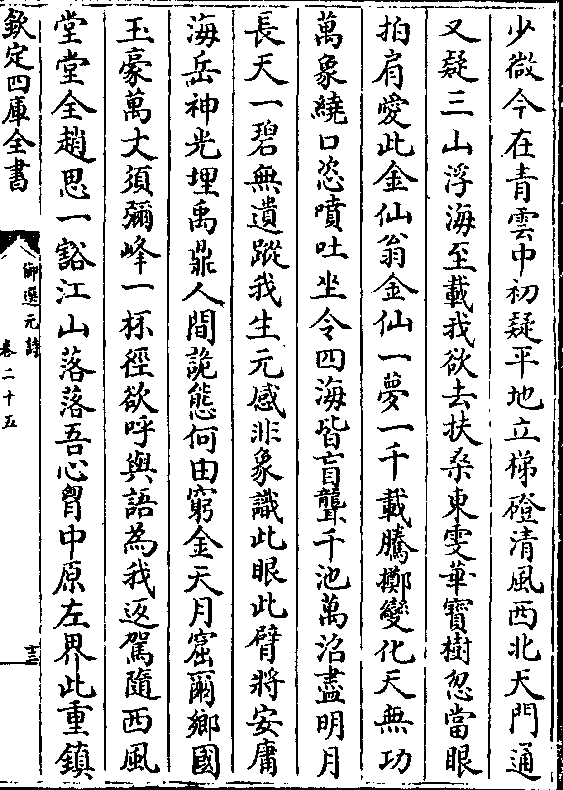 少微今在青雲中初疑平地立梯磴清風西北天門通
又疑三山浮海至載我欲去扶桑東雯華寶樹忽當眼
拍肩愛此金仙翁金仙一夢一千載騰擲變化天無功
萬象繞口恣噴吐坐令四海皆盲聾千池萬沼盡明月
長天一碧無遺蹤我生元感非象識此眼此臂將安庸
海岳神光埋禹鼎人間詭態何由窮金天月窟爾鄉國
玉豪萬丈須彌峰一杯徑欲呼與語為我返駕隨西風
堂堂全趙思一豁江山落落吾心胷中原左界此重鎮
欽定四庫全書
御選元詩
卷二十五